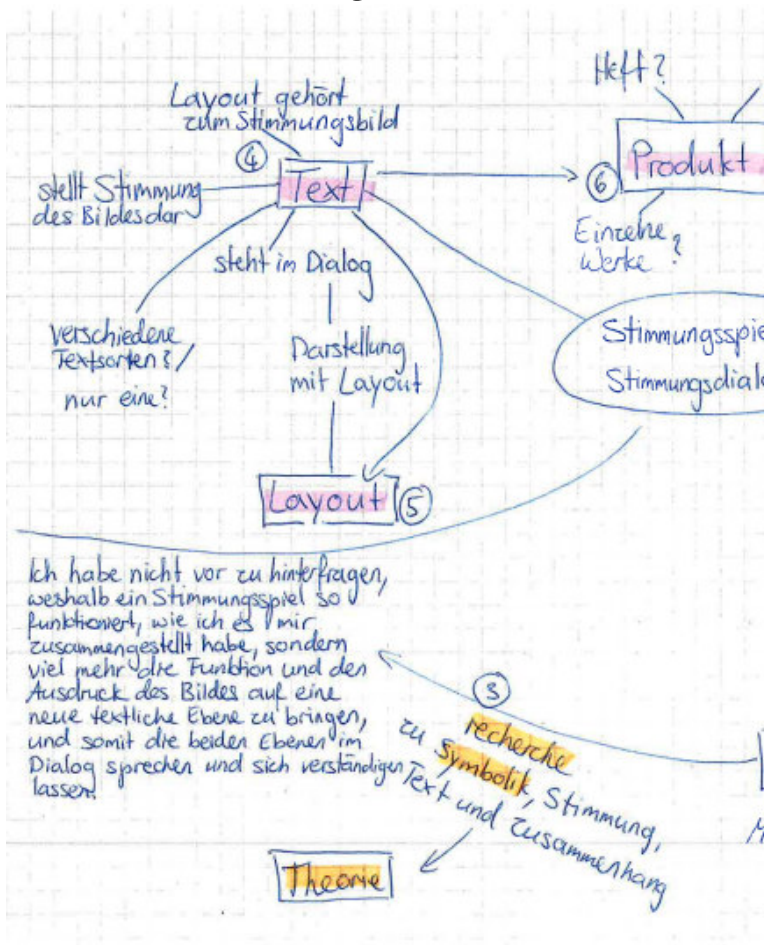 Layout gehört
zum Stimmungsbild
④
Text
stellt Stimmung
des Bildes dar
steht im Dialog
verschiedene
Textsorten?/
nur eine?
Darstellung
mit Layout
Layout
⑤
Heft?
⑥
Produkt
Einzelne
Werke?
Stimmungsspie
Stimmungsdial
Ich habe nicht vor zu hinterfragen,
weshalb ein Stimmungsspiel so
funktioniert, wie ich es mir
zusammengestellt habe, sondern
viel mehr die Funktion und den
Ausdruck des Bildes auf eine
neue textliche Ebene zu bringen,
und somit die beiden Ebenen im
Dialog sprechen und sich verständigen
lassen.
③
recherche
zu Symbolik, Stimmung,
Text und Zusammenhang
Theorie